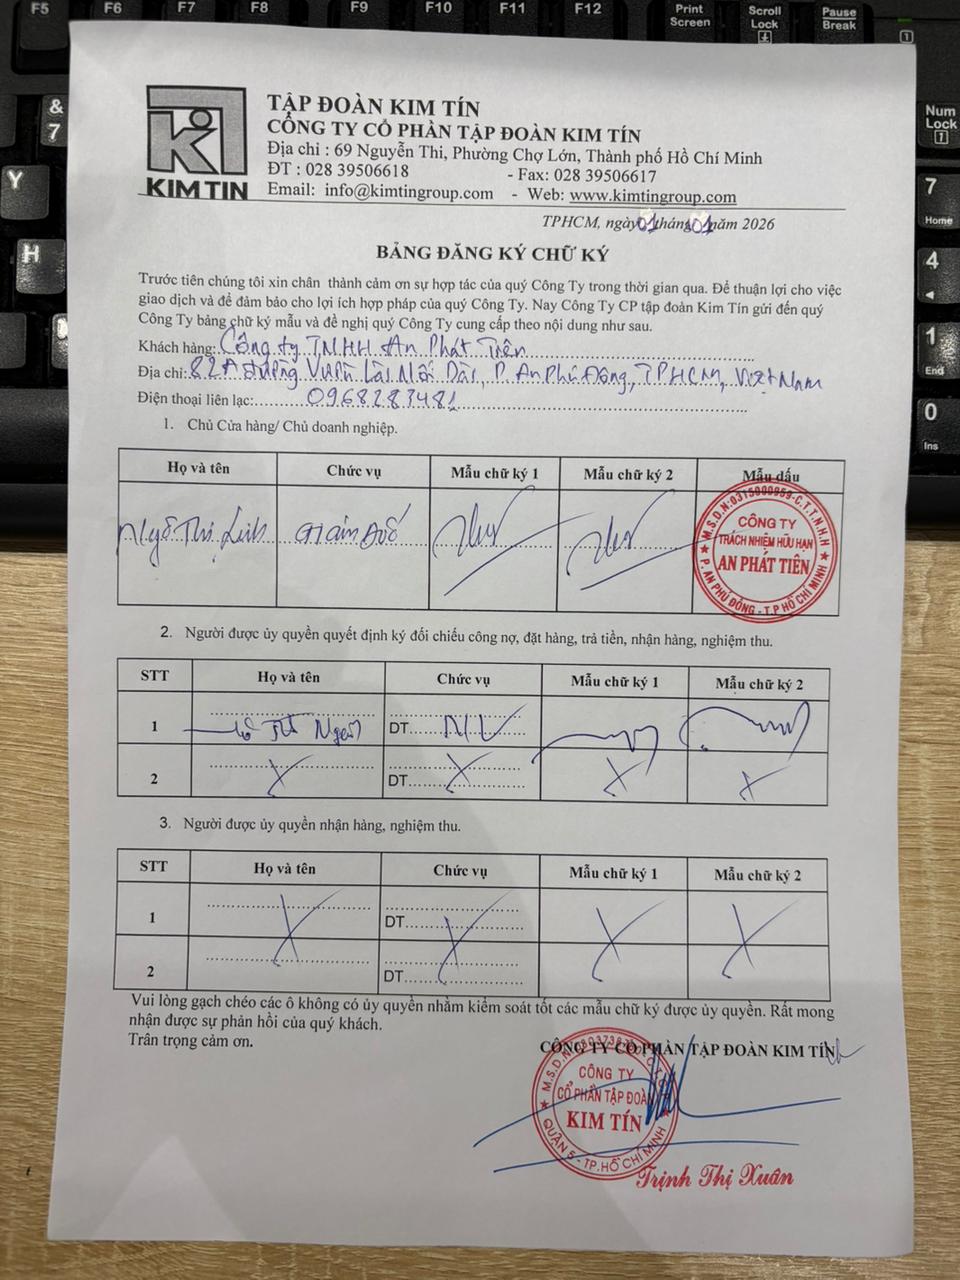 F5 F6 F7 F8 F9 F10 F11 F12 Print Screen Scroll Lock Pause Break
& 7
Y
H
Num Lock
7 Home
4
1 End
0 Ins
KIM TIN
TẬP ĐOÀN KIM TÍN
CÔNG TY CỔ PHẦN TẬP ĐOÀN KIM TÍN
Địa chỉ : 69 Nguyễn Thi, Phường Chợ Lớn, Thành phố Hồ Chí Minh
ĐT : 028 39506618 - Fax: 028 39506617
Email: info@kimtingroup.com - Web: www.kimtingroup.com
TPHCM, ngày 01 tháng 01 năm 2026
BẢNG ĐĂNG KÝ CHỮ KÝ
Trước tiên chúng tôi xin chân thành cảm ơn sự hợp tác của quý Công Ty trong thời gian qua. Để thuận lợi cho việc
giao dịch và để đảm bảo cho lợi ích hợp pháp của quý Công Ty. Nay Công Ty CP tập đoàn Kim Tín gửi đến quý
Công Ty bảng chữ ký mẫu và đề nghị quý Công Ty cung cấp theo nội dung như sau.
Khách hàng: Công ty TNHH An Phát Tiên
Địa chỉ: 82A đường Vườn Lài Nối Dài, P. An Phú Đông, TPHCM, Việt Nam
Điện thoại liên lạc: 0968283481
1. Chủ Cửa hàng/ Chủ doanh nghiệp.
Họ và tên Chức vụ Mẫu chữ ký 1 Mẫu chữ ký 2 Mẫu dấu
Ngô Thị Linh Giám Đốc
M.S.D.N:0315000959-C.T.T.N.H.H
CÔNG TY
TRÁCH NHIỆM HỮU HẠN
AN PHÁT TIÊN
P. AN PHÚ ĐÔNG - T.P HỒ CHÍ MINH
2. Người được ủy quyền quyết định ký đối chiếu công nợ, đặt hàng, trả tiền, nhận hàng, nghiệm thu.
STT Họ và tên Chức vụ Mẫu chữ ký 1 Mẫu chữ ký 2
1 Thị Ngân DT NV
2 DT
3. Người được ủy quyền nhận hàng, nghiệm thu.
STT Họ và tên Chức vụ Mẫu chữ ký 1 Mẫu chữ ký 2
1 DT
2 DT
Vui lòng gạch chéo các ô không có ủy quyền nhằm kiểm soát tốt các mẫu chữ ký được ủy quyền. Rất mong
nhận được sự phản hồi của quý khách.
Trân trọng cảm ơn.
CÔNG TY CỔ PHẦN TẬP ĐOÀN KIM TÍN
M.S.D.N
CÔNG TY
CỔ PHẦN TẬP ĐOÀN
KIM TÍN
QUẬN 5 - TP.HỒ CHÍ MINH
Trịnh Thị Xuân